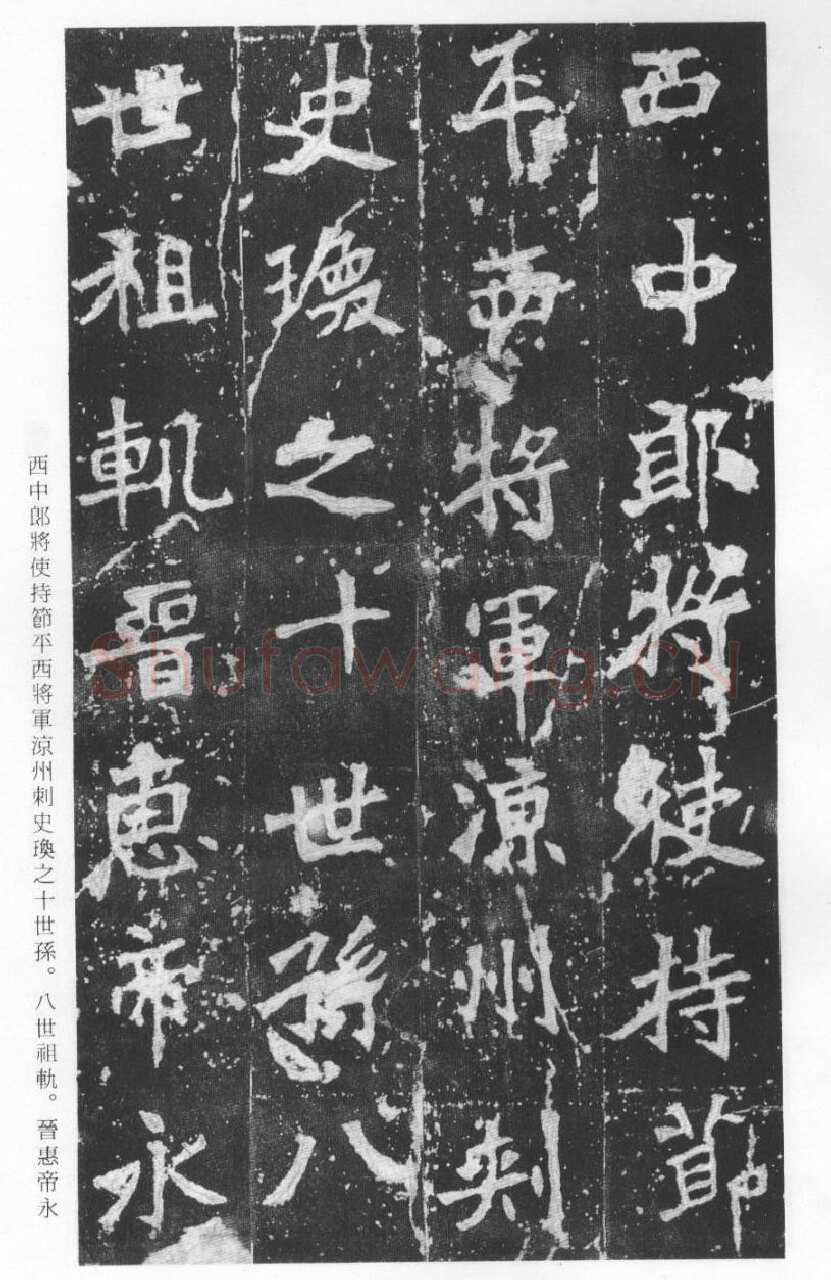 西中郎將使持節
平西將軍涼州刺
史瑍之十世孫八
世祖軌晉惠帝永
西中郎將使持節平西將軍涼州刺史瑍之十世孫。八世祖軌。晉惠帝永
Shufawang.CN